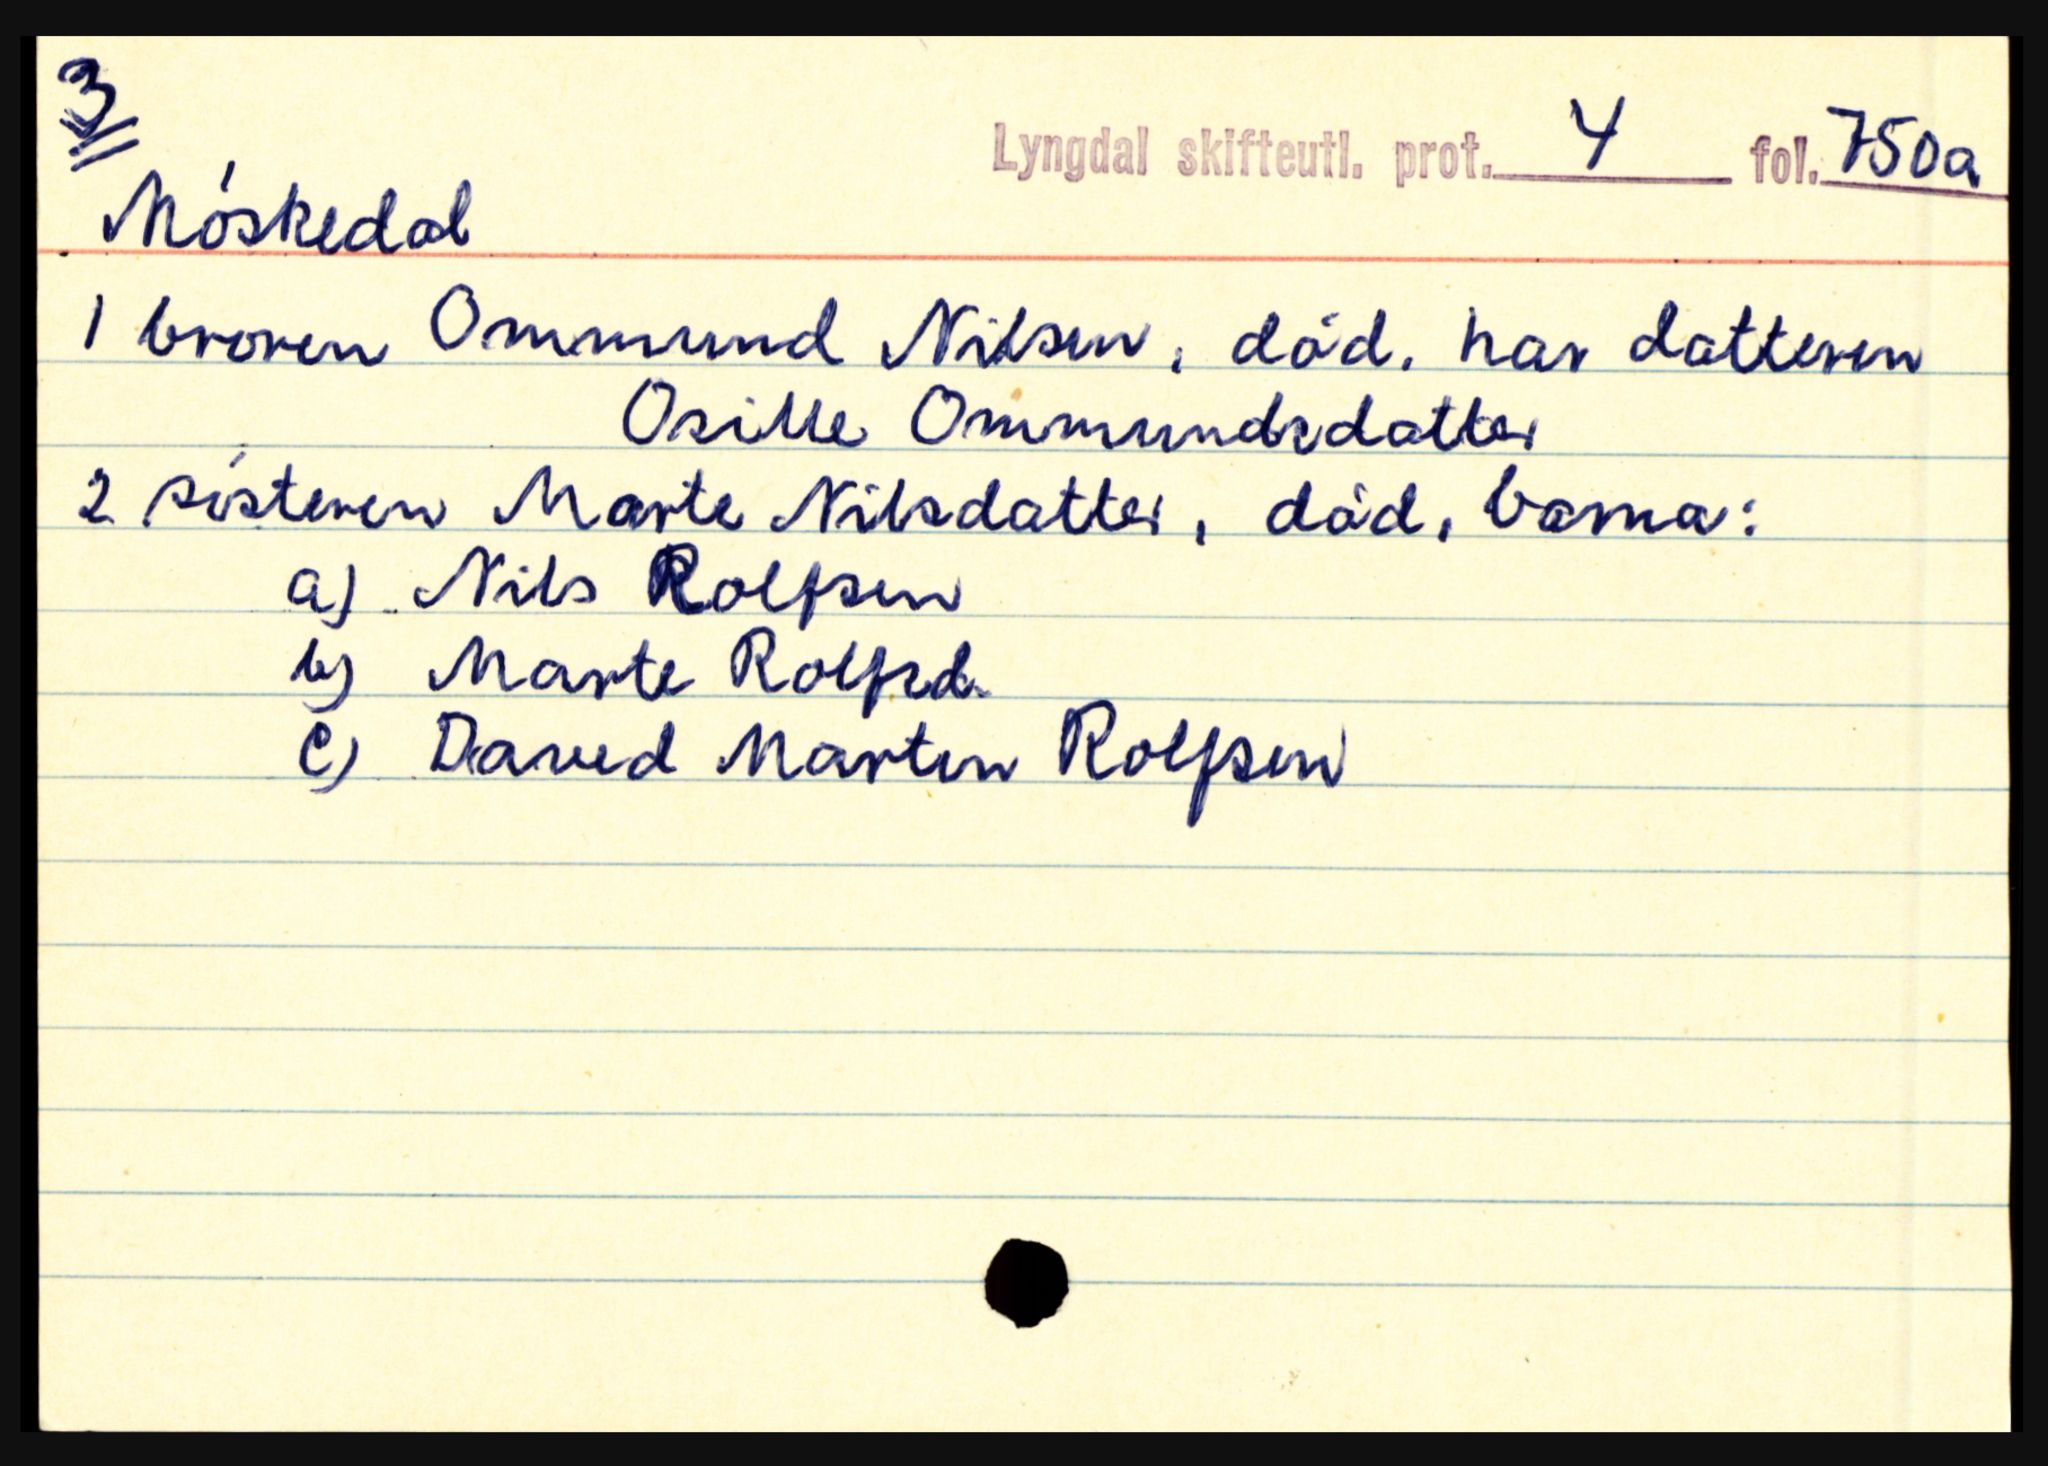 3
Lyngdal skifteutl. prot. 4 fol. 750a
Móskedal
1 broren Ommund Nilsen, død. har datteren
Osille Ommundsdatter
2 sósteren Marte Nilsdatter, død, barna:
a) Nils Rolfsen
b) Marte Rolfsd.
c) David Martin Rolfsen